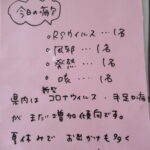 今日の病気
○RSウイルス…1名
○風邪…1名
○発熱…1名
○咳…1名
県内は新型コロナウイルス、手足口病
がまだ増加傾向です。
夏休みでお出かけも多く